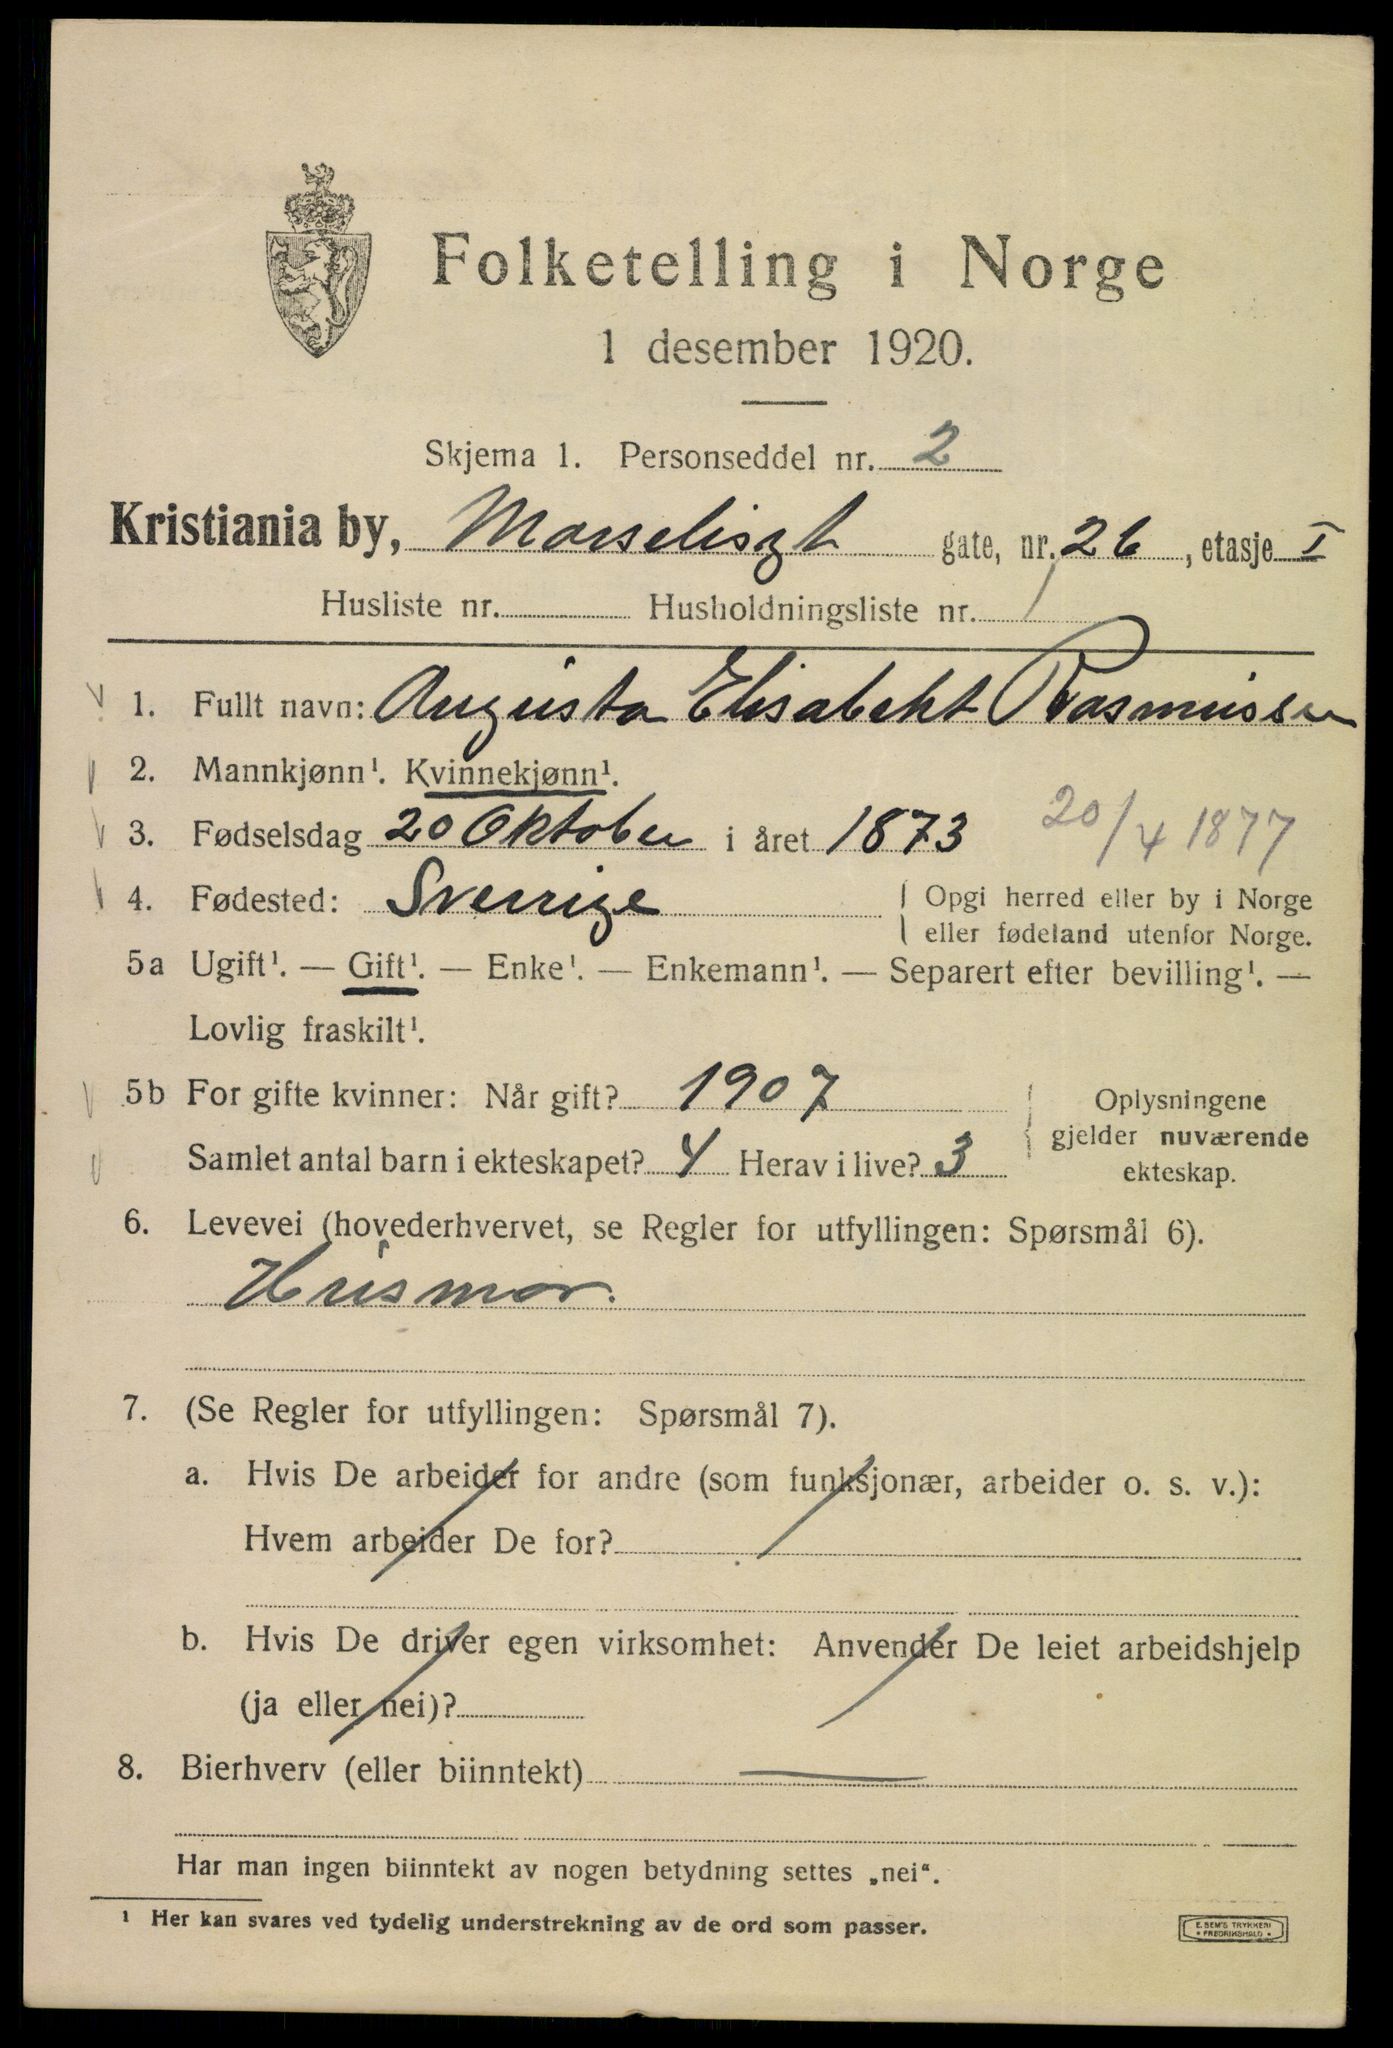 Folketelling i Norge
1 desember 1920.
Skjema 1. Personseddel nr. 2
Kristiania by, Marseliszt gate, nr. 26, etasje I
Husliste nr. Husholdningsliste nr. 1
1. Fullt navn: Augusta Elisabeht Rasmussen
2. Mannkjønn¹. Kvinnekjønn¹.
3. Fødselsdag 20 Oktober i året 1873 20/4 1877
4. Fødested: Sverrige
Opgi herred eller by i Norge
eller fødeland utenfor Norge.
5a Ugift¹. — Gift¹. — Enke¹. — Enkemann¹. — Separert efter bevilling¹. —
Lovlig fraskilt¹.
5b For gifte kvinner: Når gift? 1907
Samlet antal barn i ekteskapet? 4 Herav i live? 3
Oplysningene
gjelder nuværende
ekteskap.
6. Levevei (hovederhvervet, se Regler for utfyllingen: Spørsmål 6).
Husmor.
7. (Se Regler for utfyllingen: Spørsmål 7).
a. Hvis De arbeider for andre (som funksjonær, arbeider o. s. v.):
Hvem arbeider De for?
b. Hvis De driver egen virksomhet: Anvender De leiet arbeidshjelp
(ja eller nei)?
8. Bierhverv (eller biinntekt)
Har man ingen biinntekt av nogen betydning settes „nei“.
¹ Her kan svares ved tydelig understrekning av de ord som passer.
E. SEM'S TRYKKERI
* FREDRIKSHALD *